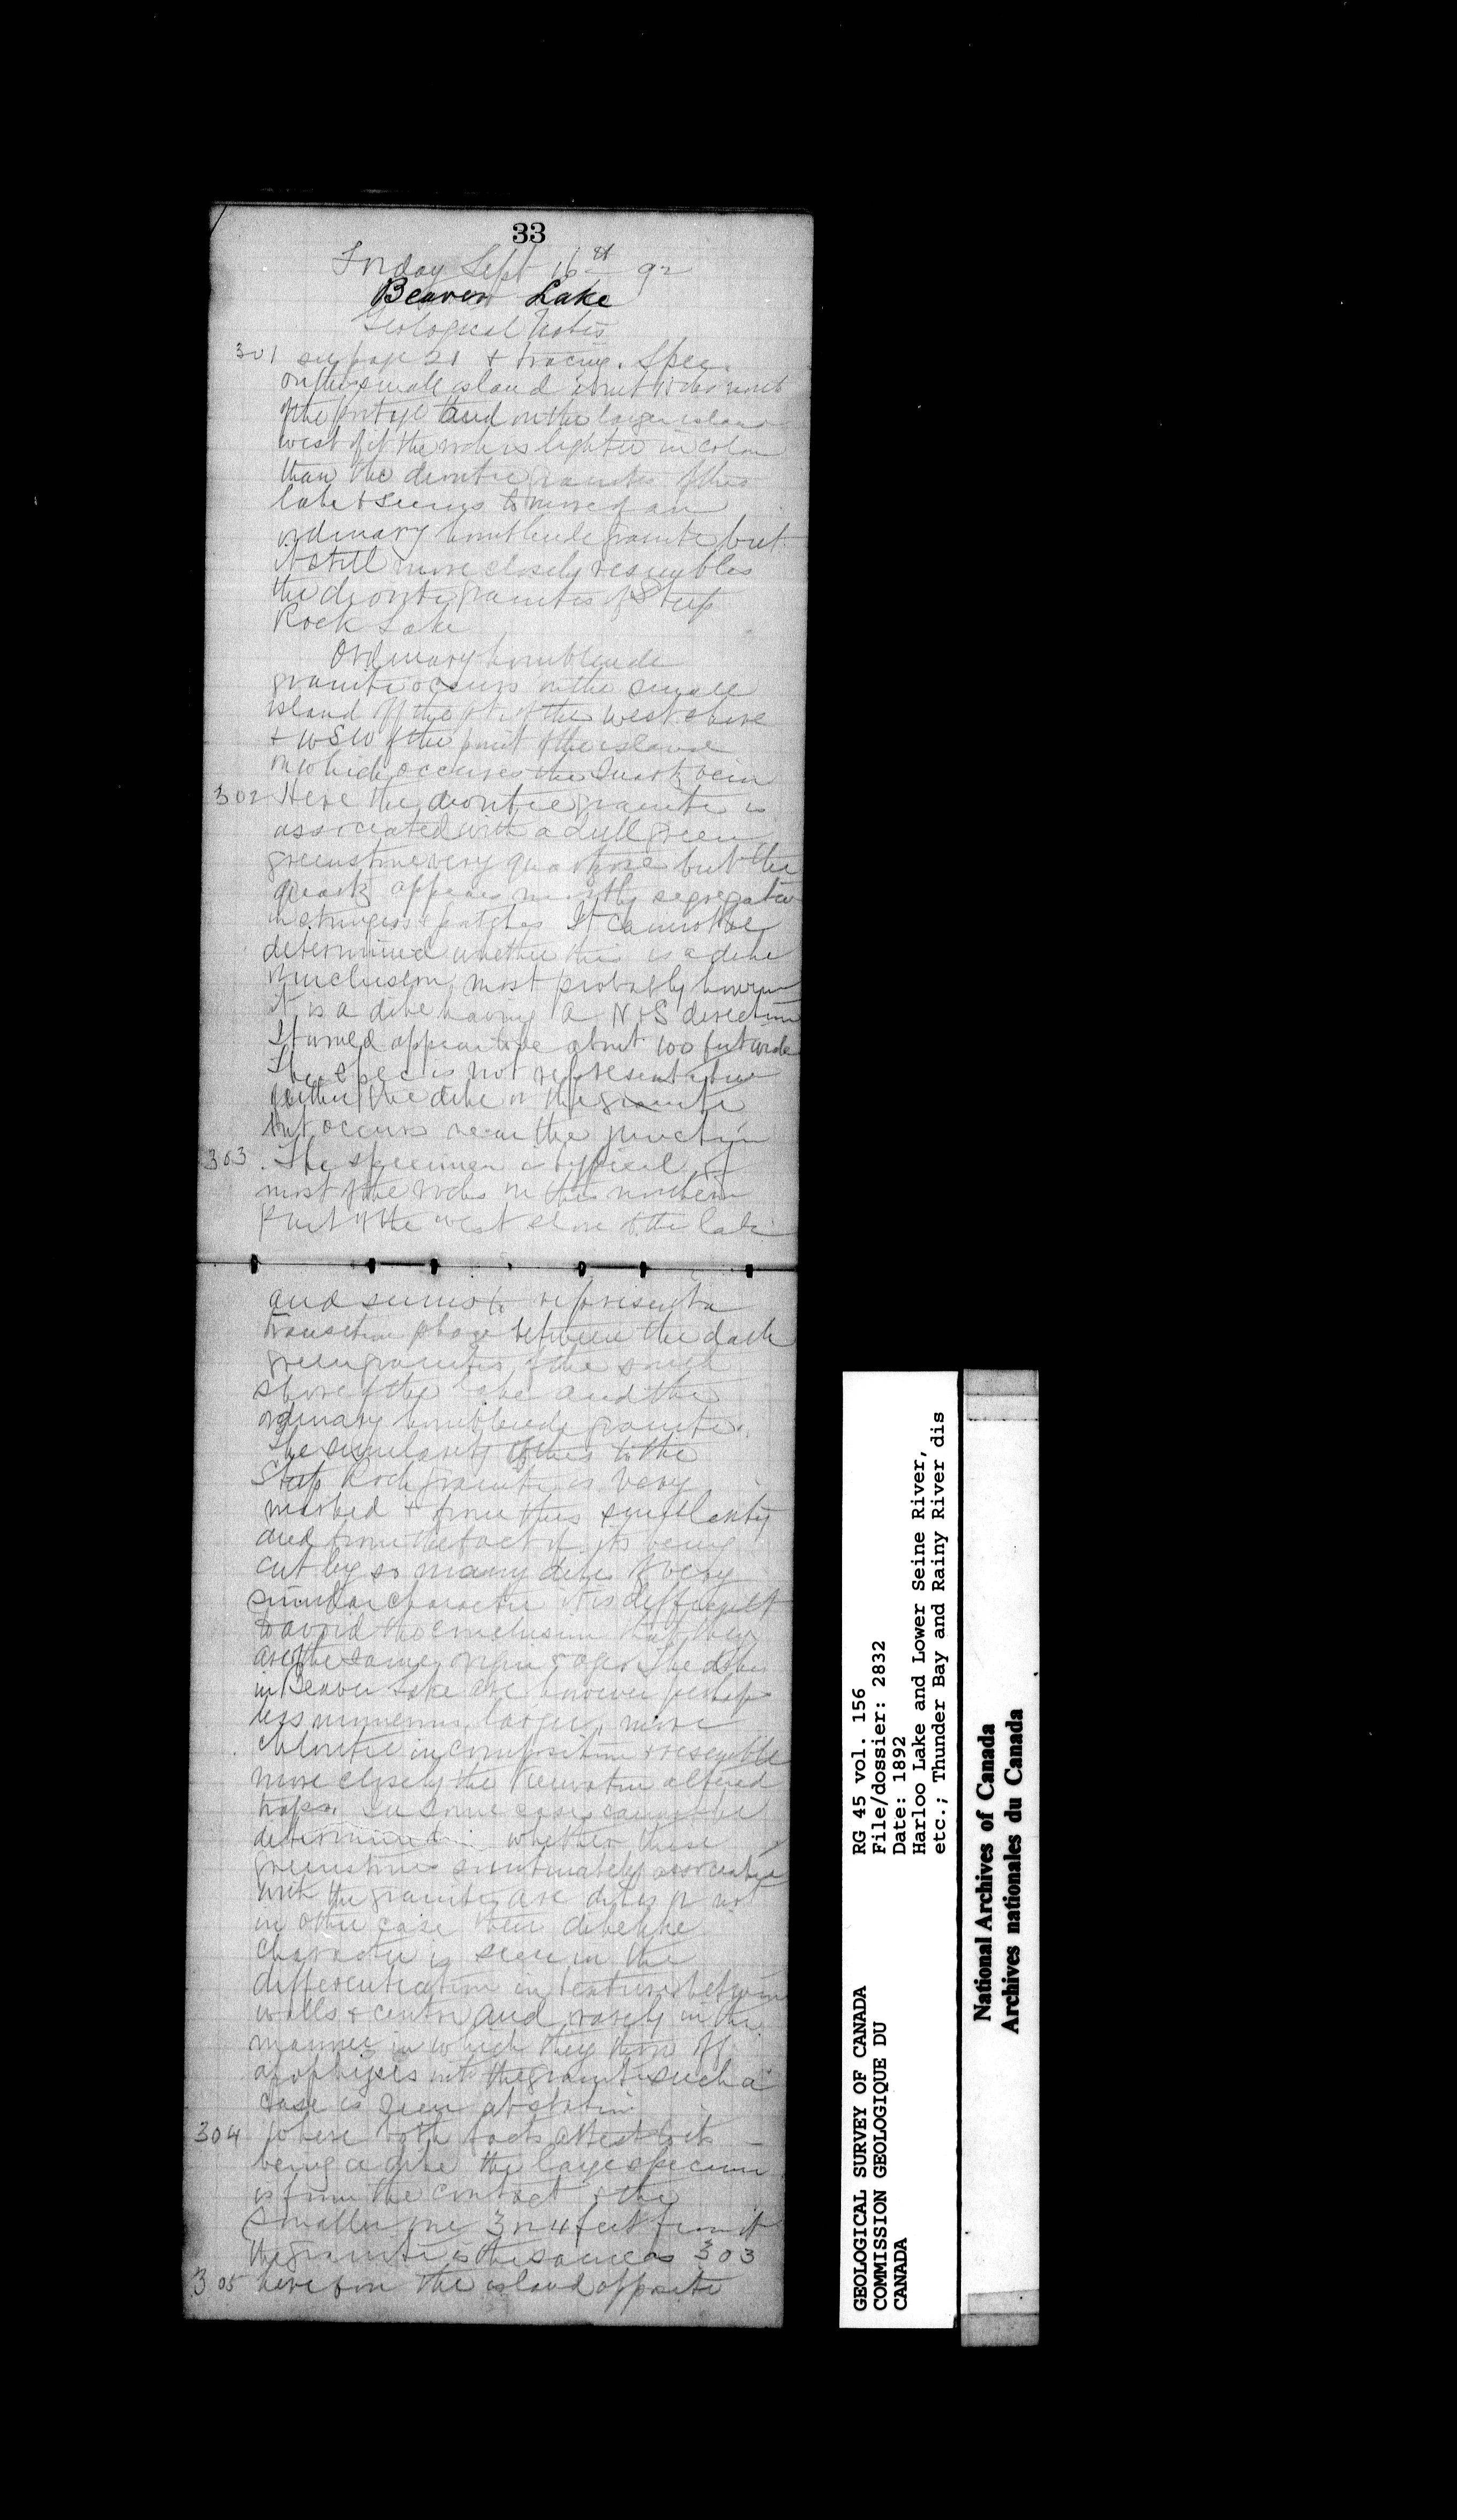 33
Friday Sept 16th 92
Beaver Lake
Geological Notes
301 see page 21 & tracing. Spec.
on the small island about 10 chs north
of the portage and on the larger island
west of it the rock is lighter in colour
than the dioritic granites of this
lake & seems to more of an
ordinary hornblende granite but
it still more closely resembles
the diorite granites of Steep
Rock Lake
Ordinary hornblende
granite occurs on the small
island off the pt. of the west shore
+ WSW of the point of the island
on which occurs the Quartz vein
302 Here the dioritic granite is
associated with a dull green
greenstone very quartzose but the
quartz appears mostly segregated
in stringers & patches It cannot be
determined whether this is a dike
or inclusion, most probably however
it is a dike having a N & S direction
It would appear to be about 100 feet wide
The spec is not representative
of either the dike or the granite
but occurs near the junction
303 The specimen is typical of
most of the rocks on this northern
part of the west shore of the lake
and seems to represent a
transition phase between the dark
green granites of the south
shore of the lake and the
ordinary hornblende granite.
The similarity of this to the
Steep Rock granite is very
marked & from this similarity
and from the fact of its being
cut by so many dikes of very
similar character it is difficult
to avoid the conclusion that they
are of the same origin & age. The dikes
in Beaver Lake are however perhaps
less numerous, larger, more
chloritic in composition & resemble
more closely the Keewatin altered
traps. In some cases cannot be
determined whether these
greenstones so intimately associated
with the granite are dikes or not
in other case their dikelike
character is seen in the
differentiation in texture between
walls & centre and rarely in the
manner in which they throw off
apophyses into the granite such a
case is seen at station
304 where both facts attest to its
being a dike the large specimen
is from the contact & the
smaller one 3 or 4 feet from it
the granite is the same as 303
305 here & on the island opposite
GEOLOGICAL SURVEY OF CANADA
COMMISSION GEOLOGIQUE DU
CANADA
RG 45 vol. 156
File/dossier: 2832
Date: 1892
Harloo Lake and Lower Seine River,
etc.; Thunder Bay and Rainy River dis
National Archives of Canada
Archives nationales du Canada